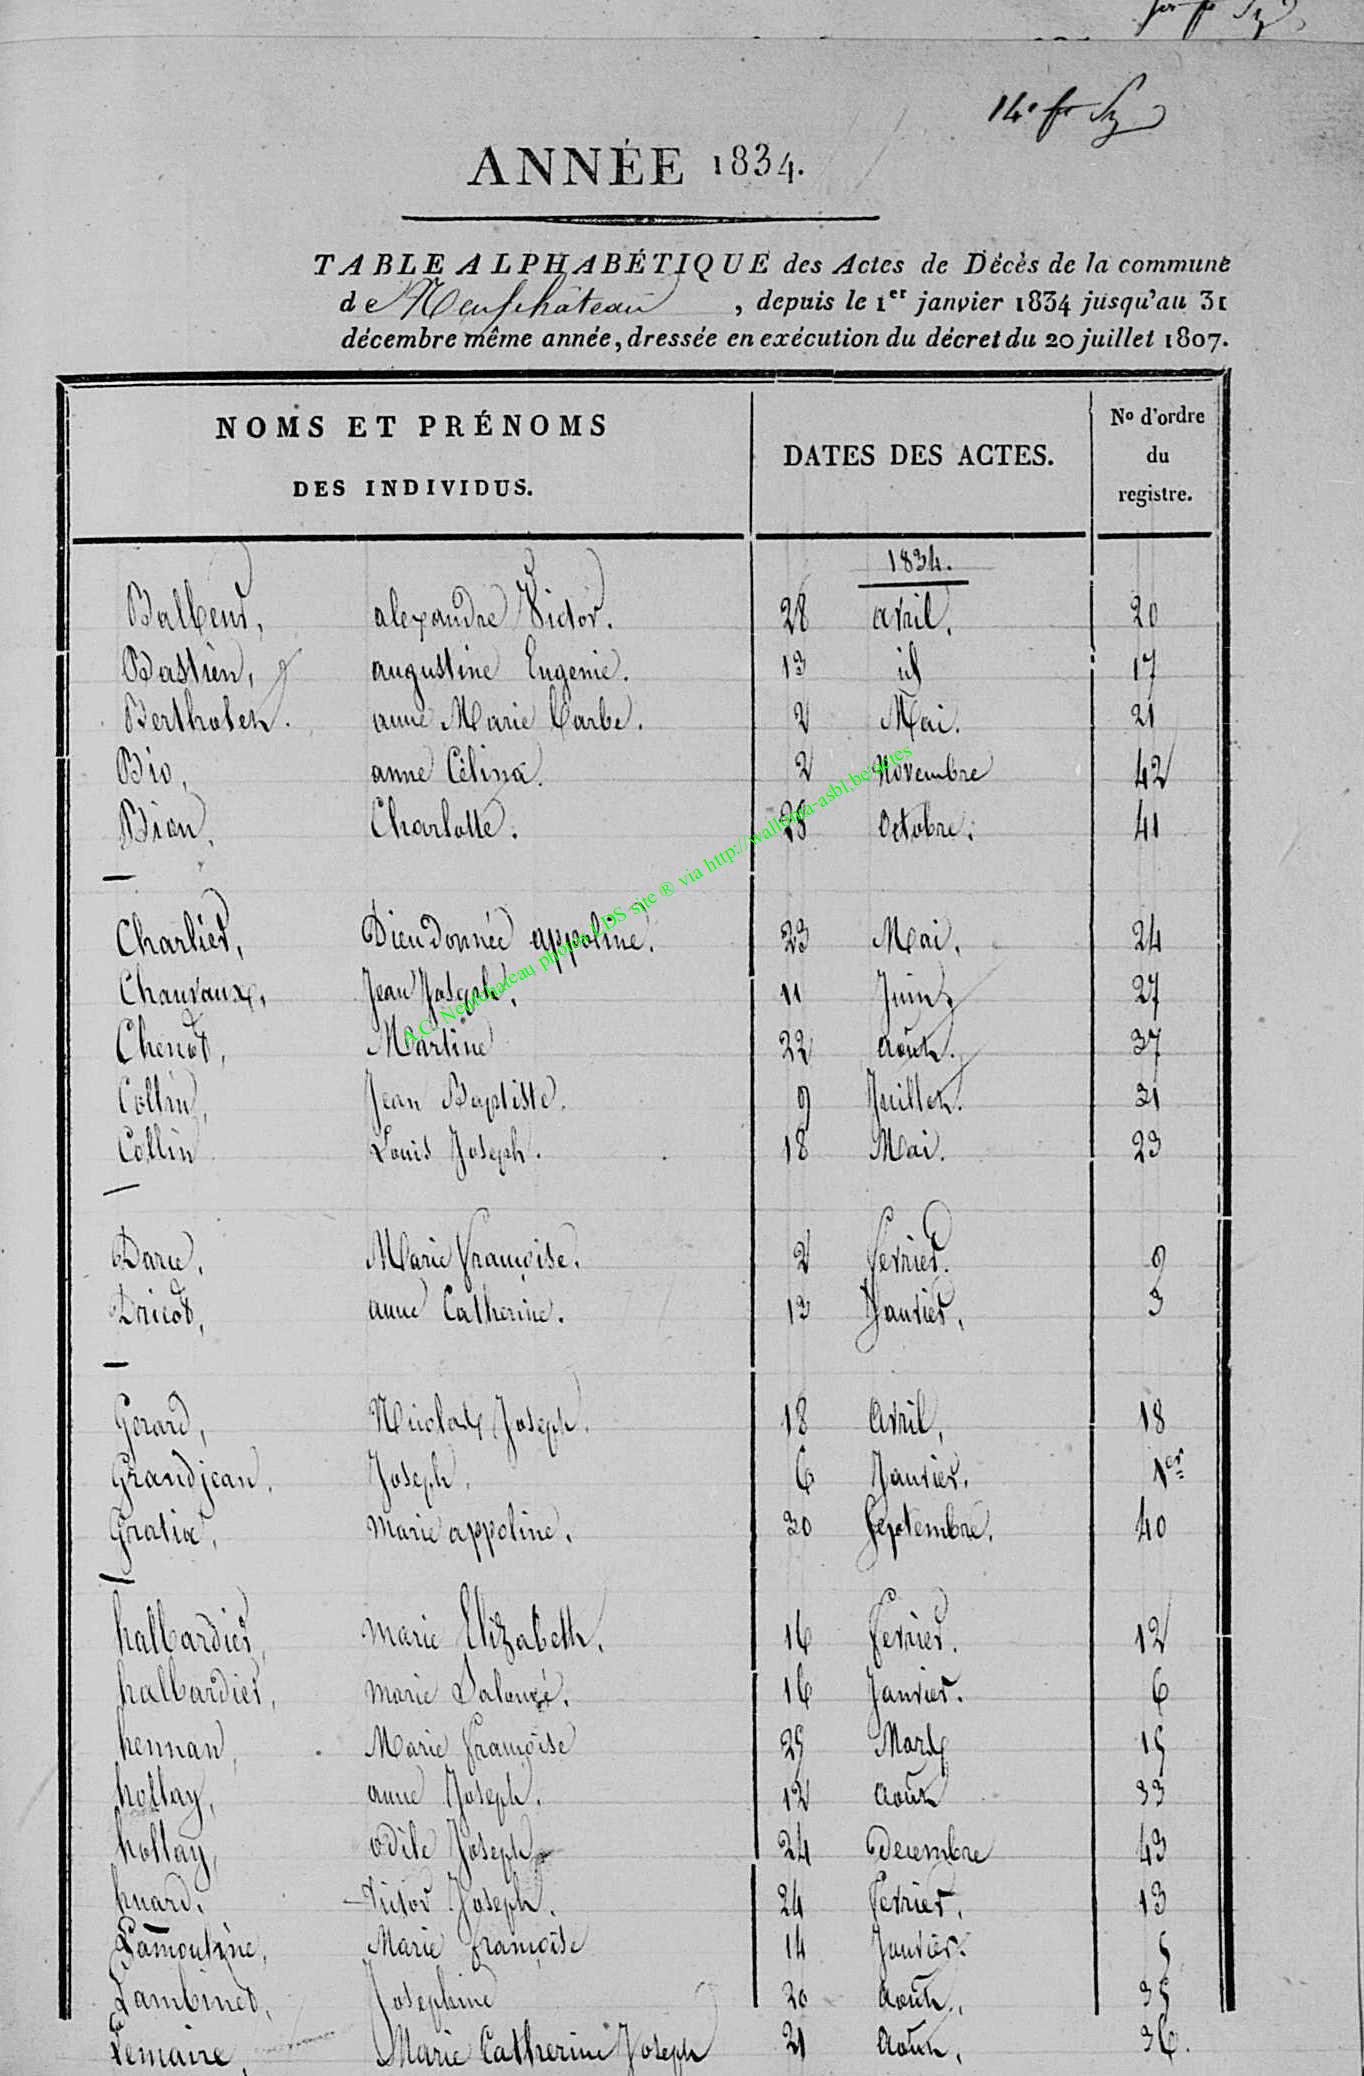 14e
ANNÉE 1834.
TABLE ALPHABÉTIQUE des Actes de Décès de la commune
de Neufchâteau, depuis le 1er janvier 1834 jusqu'au 31
décembre même année, dressée en exécution du décret du 20 juillet 1807.
NOMS ET PRÉNOMS DES INDIVIDUS. DATES DES ACTES. No d'ordre du registre.
1834.
Balbeur, alexandre Victor. 28 avril. 20
Bastien, augustine Eugenie. 13 id 17
Bertholet. anne Marie Barbe. 2 Mai. 21
Bio, anne Célina. 2 Novembre 42
Bion, Charlotte. 28 Octobre. 41
Charlier, Dieudonnée appoline. 23 Mai. 24
Chauvaux, Jean Joseph. 11 Juin 27
Chenot, Martine 22 août. 37
Collin, Jean Baptiste. 9 Juillet. 31
Collin Louis Joseph. 18 Mai. 23
Darue, Marie françoise. 2 fevrier. 9
Dricot, anne Catherine. 13 Janvier, 3
Gerard, Nicolas Joseph. 18 Avril, 18
Grandjean. Joseph. 6 Janvier. 1er
Gratia, marie appoline. 30 Septembre. 40
halbardier, marie Elizabeth. 16 fevrier. 12
halbardier, marie 16 Janvier. 6
hennan, Marie françoise 25 Mars 15
hollay, anne Joseph. 12 août 33
hollay, odile Joseph 24 Decembre 43
huard. Victor Joseph. 24 fevrier. 13
Lamouline, Marie françoise 14 Janvier. 5
Lambinet, Josephine 20 août. 35
Lemaire, Marie Catherine Joseph 21 août. 36.
A.C. Neufchateau photos LDS site ® via http://wallonia-asbl.be/actes